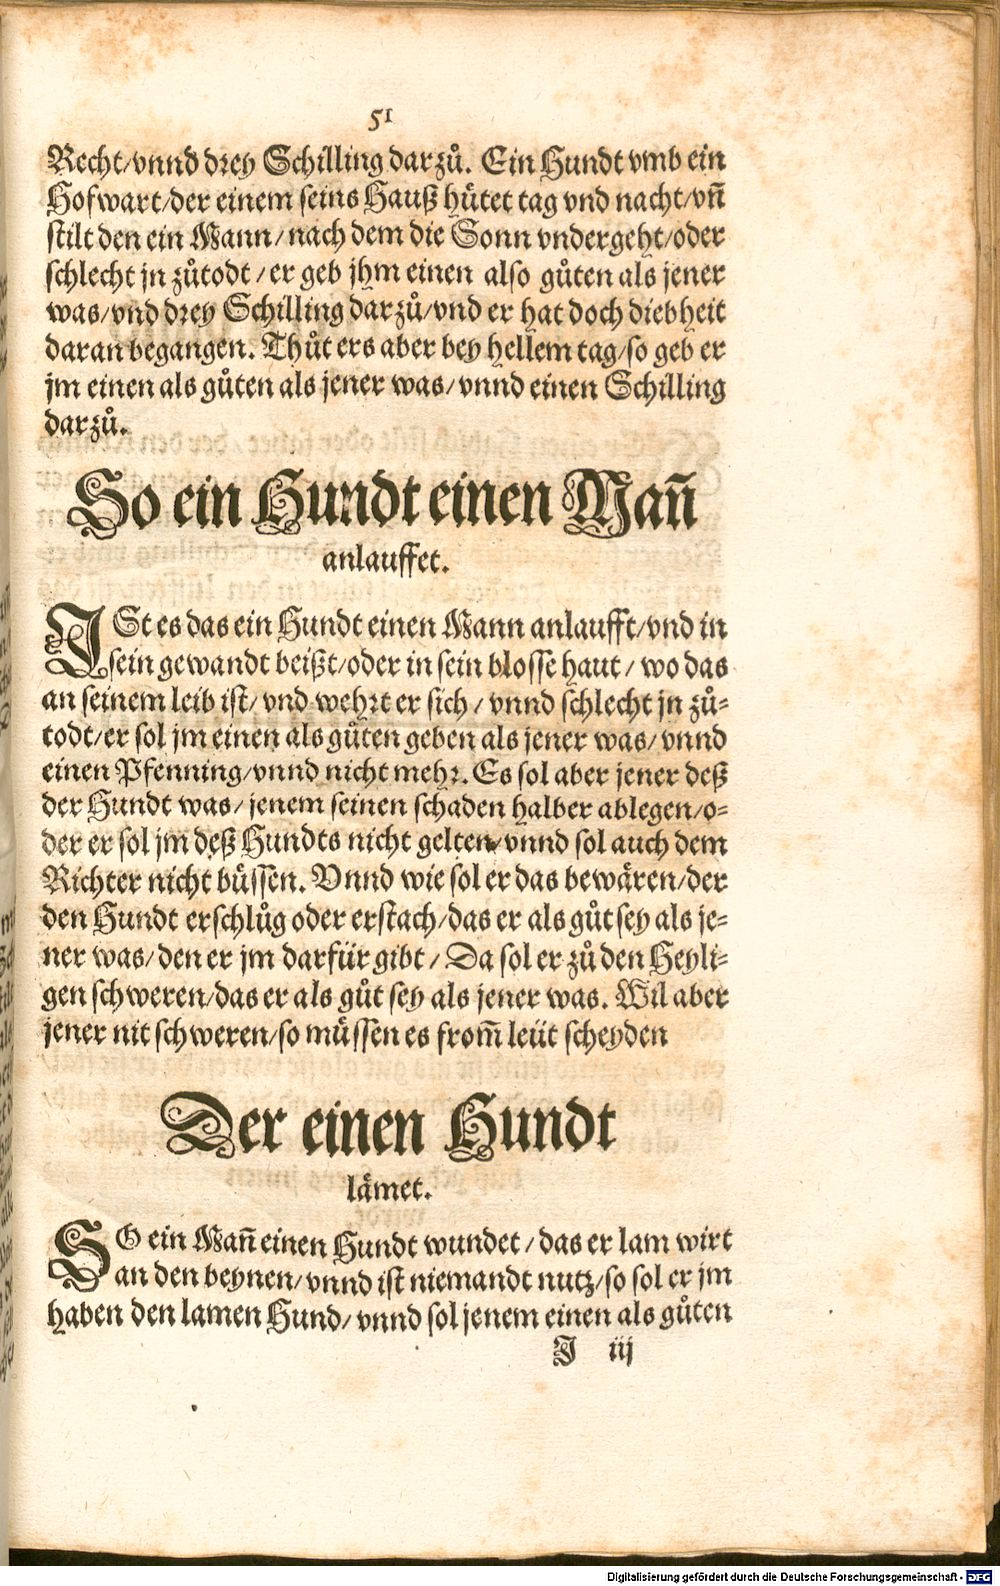 51
Recht/vnnd drey Schilling darzů. Ein Hundt vmb ein
Hofwart/der einem seins Hauß hütet tag vnd nacht/vñ
stilt den ein Mann/nach dem die Sonn vndergeht/oder
schlecht jn zůtodt/er geb jhm einen also gůten als jener
was/vnd drey Schilling darzů/vnd er hat doch diebheit
daran begangen. Thůt ers aber bey hellem tag/so geb er
jm einen als gůten als jener was/vnnd einen Schilling
darzů.
So ein Hundt einen Mañ
anlauffet.
ISt es das ein Hundt einen Mann anlaufft/vnd in
sein gewandt beißt/oder in sein blosse haut/wo das
an seinem leib ist/vnd wehrt er sich/vnnd schlecht jn zů-
todt/er sol jm einen als gůten geben als jener was/vnnd
einen Pfenning/vnnd nicht mehr. Es sol aber jener deß
der Hundt was/jenem seinen schaden halber ablegen/o-
der er sol jm deß Hundts nicht gelten/vnnd sol auch dem
Richter nicht büssen. Vnnd wie sol er das bewären/der
den Hundt erschlůg oder erstach/das er als gůt sey als je-
ner was/den er jm darfür gibt/Da sol er zů den Heyli-
gen schweren/das er als gůt sey als jener was. Wil aber
jener nit schweren/so müssen es from̃ leüt scheyden
Der einen Hundt
lämet.
SO ein Mañ einen Hundt wundet/das er lam wirt
an den beynen/vnnd ist niemandt nutz/so sol er jm
haben den lamen Hund/vnnd sol jenem einen als gůten
J iij
Digitalisierung gefördert durch die Deutsche Forschungsgemeinschaft - DFG